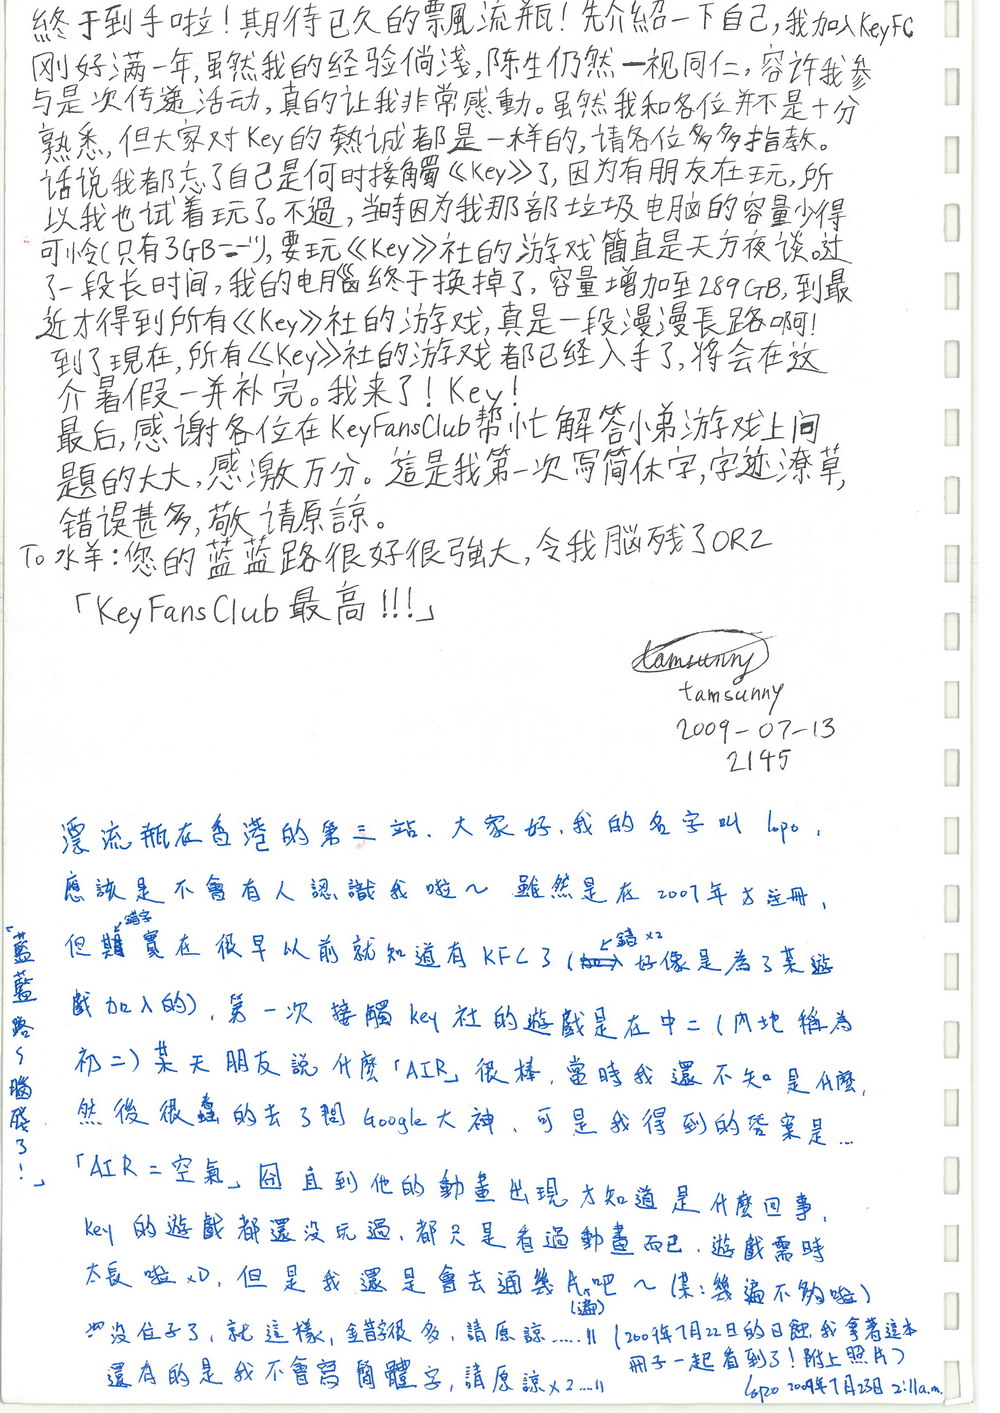 終于到手啦！期待已久的票風流瓶！先介紹一下自己，我加入KeyFC
刚好满一年，虽然我的经验倘淺，陈生仍然一视同仁，容许我参
与是次传递活动，真的让我非常感動。虽然我和各位并不是十分
熟悉，但大家对Key的熱诚都是一样的，请各位多多指教。
话说我都忘了自己是何时接觸《Key》了，因为有朋友在玩，所
以我也试着玩了。不過，当時因为我那部垃圾电脑的容量少得
可怜(只有3GB=="),要玩《Key》社的游戏簡直是天方夜谈。过
了一段长时间，我的电腦終于换掉了，容量增加至289GB，到最
近才得到所有《Key》社的游戏，真是一段漫漫長路啊！
到了現在，所有《Key》社的游戏都已经入手了，将会在这
个暑假一并补完。我来了！Key！
最后，感谢各位在KeyFansClub幫忙解答小弟游戏上问
題的大大，感激万分。這是我第一次写简体字，字迹潦草，
错误甚多，敬请原諒。
To 水羊：您的蓝蓝路很好很強大，令我脑残了ORZ
「KeyFansClub最高!!!」
tamsunny
tamsunny
2009-07-13
2145
漂流瓶在香港的第三站、大家好，我的名字叫lopo，
應該是不會有人認識我啦～ 雖然是在2007年才註冊，
錯字
但其實在很早以前就知道有KFC了(好像是為了某遊
錯x2
戲加入的)，第一次接觸key社的遊戲是在中二(內地稱為
初二)某天朋友說什麼「AIR」很棒，當時我還不知是什麼，
然後很蠢的去了問Google大神，可是我得到的答案是…
「AIR=空氣」囧 直到他的動畫出現才知道是什麼回事，
key的遊戲都還沒玩過，都只是看過動畫而已，遊戲需時
太長啦xD，但是我還是會去通幾片吧～(某：幾遍不夠啦)
(遍)
沒位子了，就這樣，錯字很多，請原諒.....!! (2009年7月22日的日蝕，我拿著這本
冊子一起看到了！附上照片)
還有的是我不會寫簡體字，請原諒x2....!!
lopo 2009年7月23日 2:11a.m.
「藍藍路～腦殘了！」